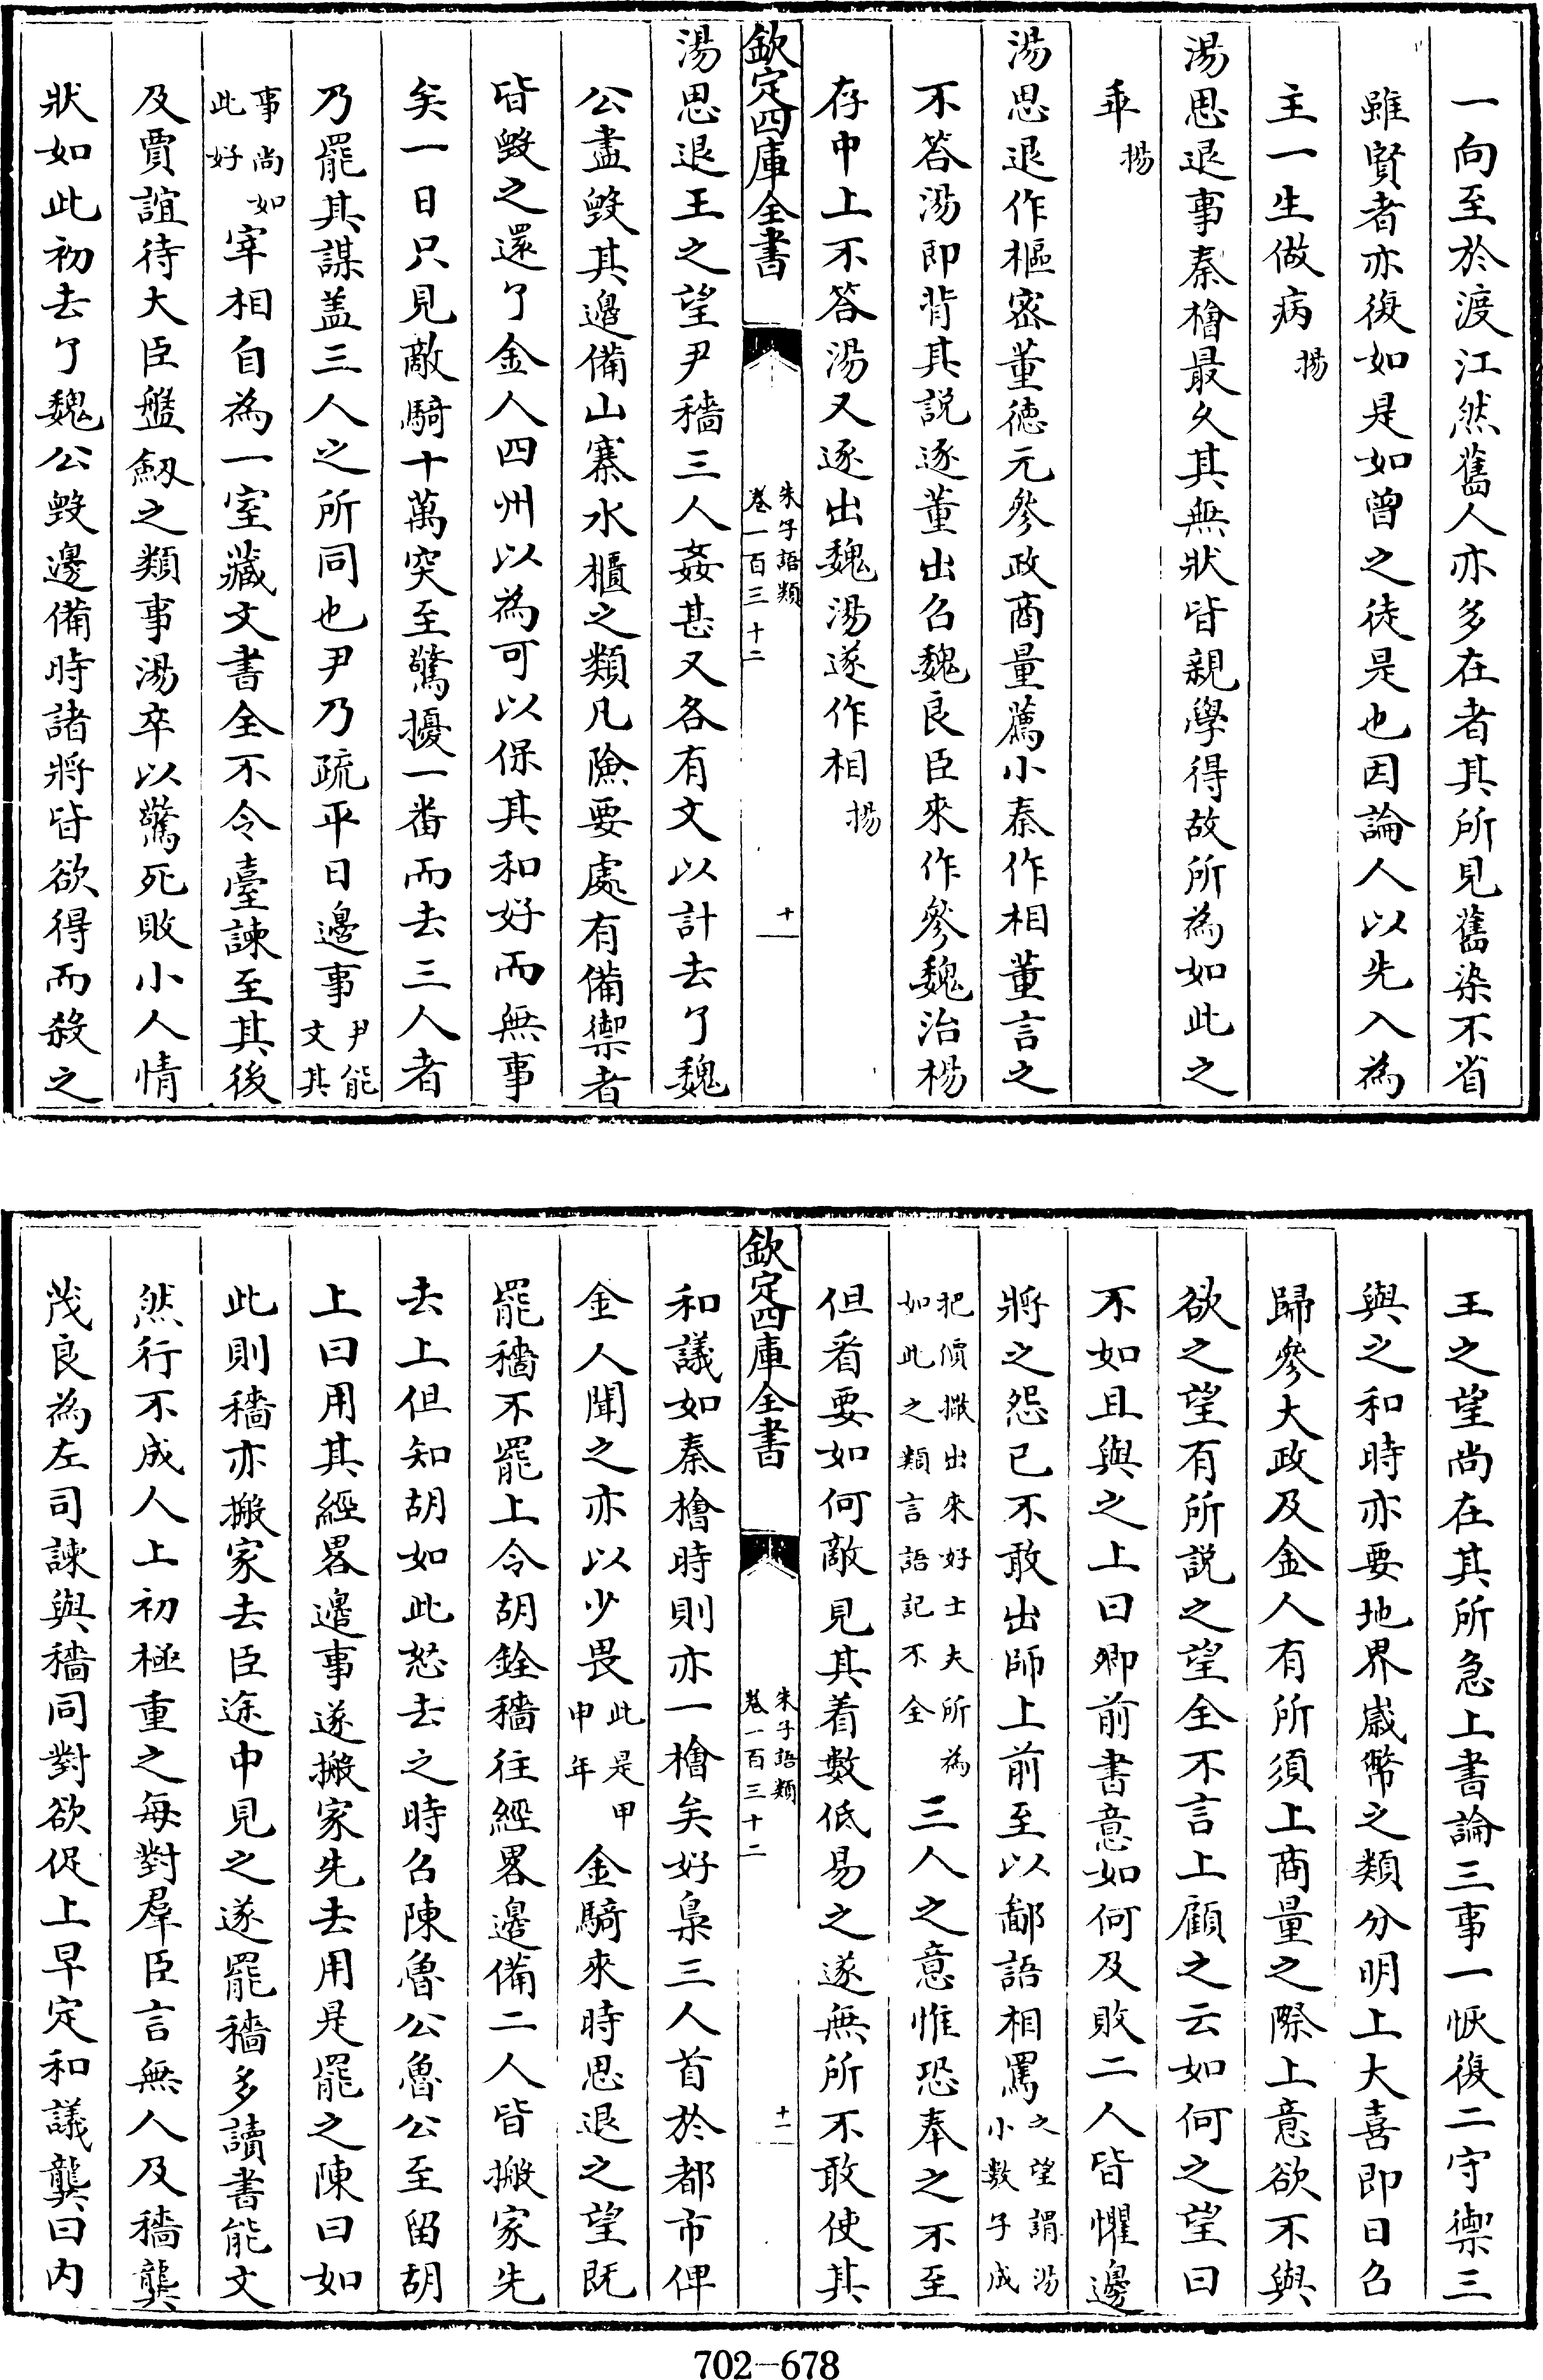 一向至於渡江然舊人亦多在者其所見舊染不省
雖賢者亦復如是如曾之徒是也因論人以先入為
主一生做病揚
湯思退事秦檜最久其無狀皆親學得故所為如此之
乖揚
湯思退作樞密董德元參政商量薦小秦作相董言之
不答湯即背其説逐董出召魏良臣來作參魏治楊
存中上不答湯又逐出魏湯遂作相揚
欽定四庫全書
朱子語類
卷一百三十二
十
湯思退王之望尹穡三人姦甚又各有文以計去了魏
公盡毁其邊備山寨水櫃之類凡險要處有備禦者
皆毁之還了金人四州以為可以保其和好而無事
矣一日只見敵騎十萬突至驚擾一番而去三人者
乃罷其謀盖三人之所同也尹乃疏平日邊事尹能文其
事尚如此好宰相自為一室藏文書全不令臺諫至其後
及賈誼待大臣盤劒之類事湯卒以驚死敗小人情
狀如此初去了魏公毁邊備時諸將皆欲得而殺之
王之望尚在其所急上書論三事一恢復二守禦三
與之和時亦要地界歲幣之類分明上大喜即日召
歸參大政及金人有所須上商量之際上意欲不與
欲之望有所説之望全不言上顧之云如何之望曰
不如且與之上曰卿前書意如何及敗二人皆懼邊
將之怨已不敢出師上前至以鄙語相罵之望謂湯小數子成
把價撒出來好士夫所為如此之類言語記不全三人之意惟恐奉之不至
但看要如何敵見其着數低易之遂無所不敢使其
欽定四庫全書
朱子語類
卷一百三十二
十一
和議如秦檜時則亦一檜矣好梟三人首於都市俾
金人聞之亦以少畏此是甲申年金騎來時思退之望既
罷穡不罷上令胡銓穡往經畧邊備二人皆搬家先
去上但知胡如此怒去之時召陳魯公魯公至留胡
上曰用其經畧邊事遂搬家先去用是罷之陳曰如
此則穡亦搬家去臣途中見之遂罷穡多讀書能文
然行不成人上初極重之每對羣臣言無人及穡龔
茂良為左司諫與穡同對欲促上早定和議龔曰内
702-678